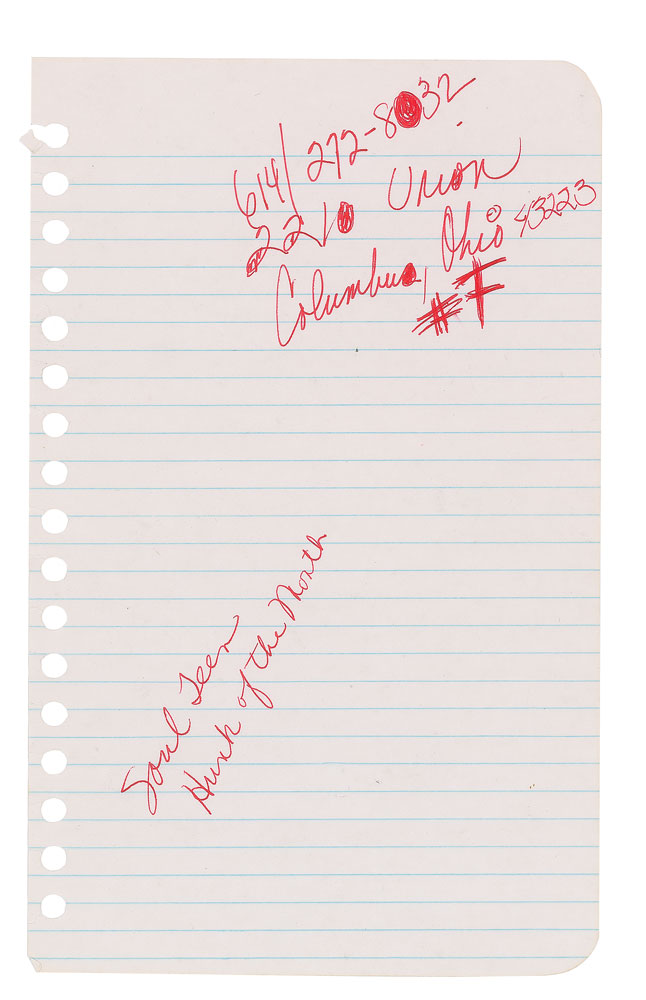 614/272-8032
2210 Union
Columbus, Ohio 43223
#F
Soul Teen
Hunk of the Month